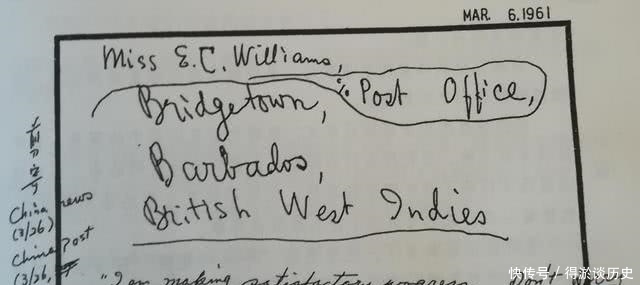 MAR. 6.1961
Miss E.C. Williams,
% Post Office,
Bridgetown,
Barbados,
British West Indies
China News
(3/26)
China Post
(3/26,
"I am making satisfactory progress. Don't
快传号/得淤谈历史